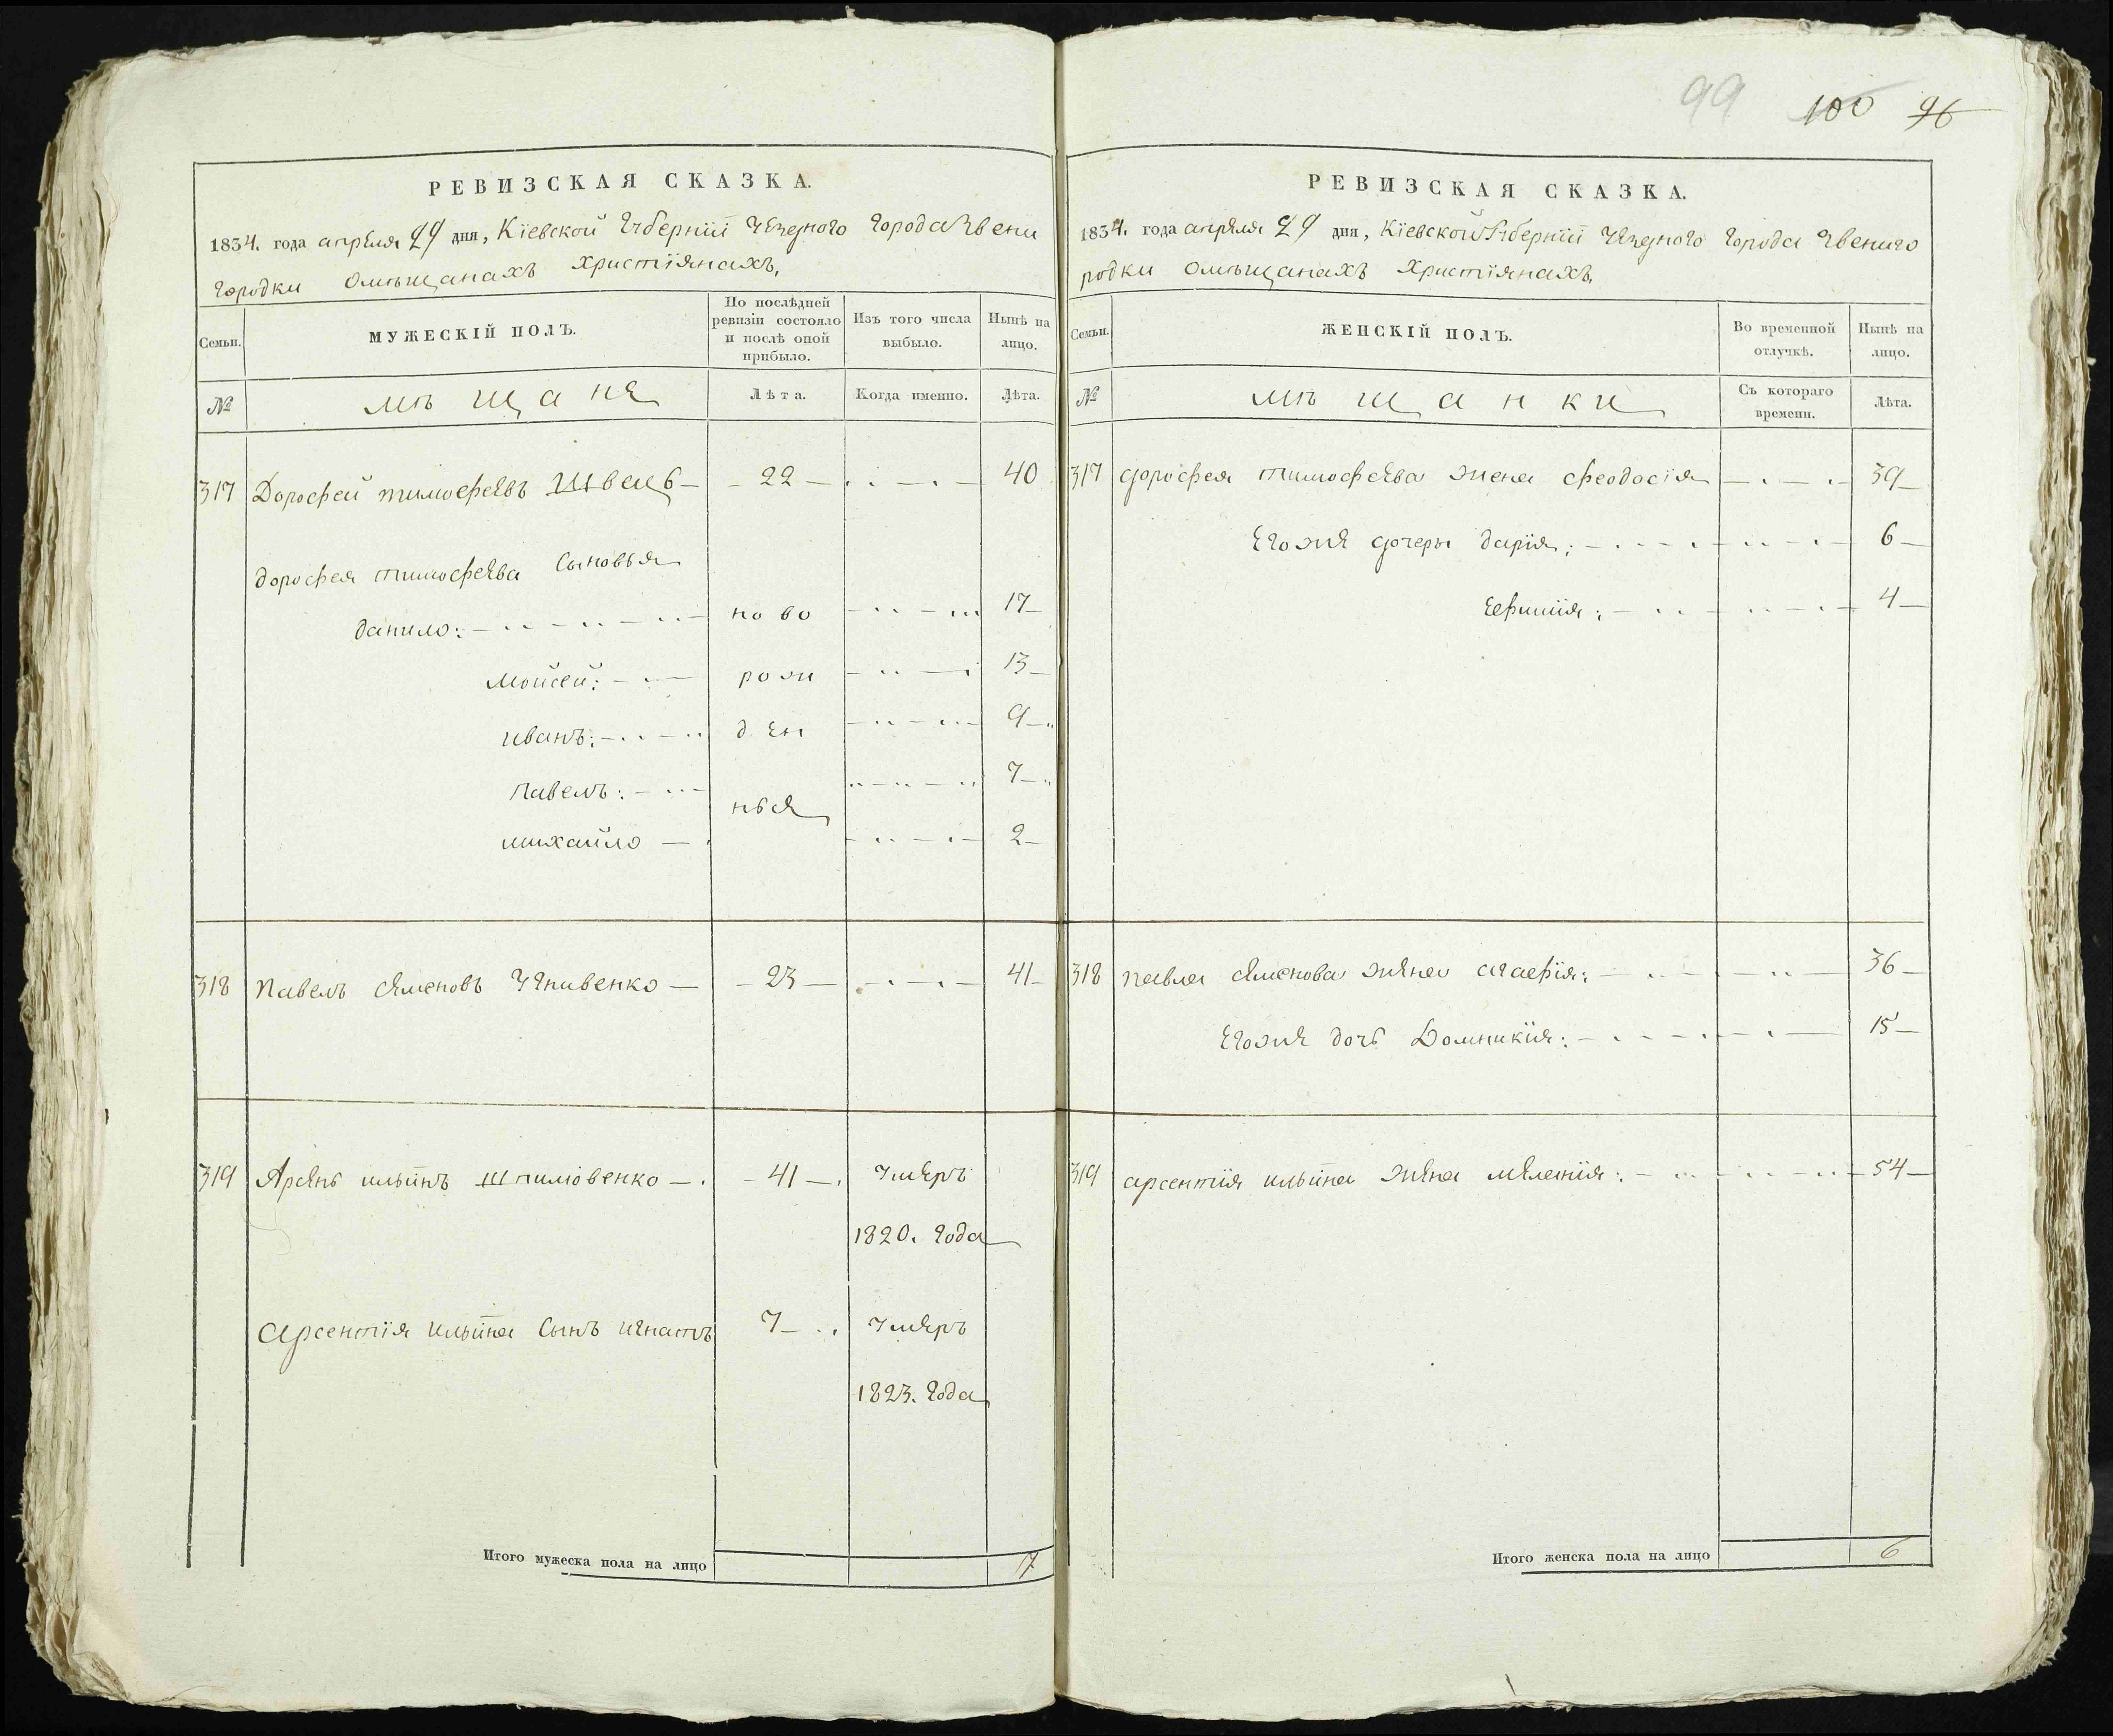 99 100 96
РЕВИЗСКАЯ СКАЗКА.
1834. года апреля 29 дня, Кіевской Губерніи Уезднаго Города Звени
городки омѣщанахъ христіянахъ,
Семьи. МУЖЕСКІЙ ПОЛЪ. По послѣдней ревизіи состояло и послѣ оной прибыло. Изъ того числа выбыло. Нынѣ на лицо.
№ мѣщане Лѣта. Когда именно. Лѣта.
317 Дорофей тимофеевъ Швецъ 22 40
дорофея тимофеева сыновья
данило: ново 17
мойсей: рож 13
иванъ: ден 9
павелъ: 7
ныя
михайло 2
318 Павелъ семеновъ 23 41
319 Арсень ильинъ шпилювенко 41 умеръ
1820. года
Арсентія ильина сынъ игнатъ 7 умеръ
1823. года
Итого мужеска пола на лицо 7
РЕВИЗСКАЯ СКАЗКА.
1834. года апреля 29 дня, Кіевской Губерніи Уезднаго Города Звениго
родки омѣщанахъ христіянахъ,
Семьи. ЖЕНСКІЙ ПОЛЪ. Во временной отлучкѣ. Нынѣ на лицо.
№ мѣщанки Съ котораго времени. Лѣта.
317 дорофея тимофеева жена феодосія 39
Егоже дочеры дарія: 6
Ефимія: 4
318 павла семенова жена агафія: 36
Егоже дочь Домникія: 15
319 арсентія ильина жена меланія: 54
Итого женска пола на лицо 6